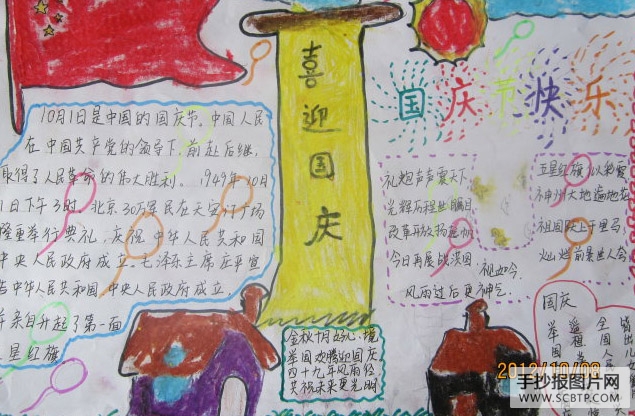 喜迎国庆
国庆节快乐
10月1日是中国的国庆节.中国人民
在中国共产党的领导下,前赴后继,
取得了人民革命的伟大胜利. 1949年10月
1日下午3时,北京30万军民在天安门广场
隆重举行典礼,庆祝中华人民共和国
中央人民政府成立.毛泽东主席庄严宣
告中华人民共和国,中央人民政府成立
并亲自升起了第一面
五星红旗
礼炮声声震天下
光辉历程世瞩目
改革开放扬
今日再展
祝如今
风雨过后更神气.
五星红旗
神州大地遍地花
祖国跃上千里马
灿烂前景世人夸
金秋十月好心境
举国欢腾迎国庆
四十九年风雨经
共祝未来更光明
国庆
举国
遥祖
全国人
2012/10/08
手抄报图片网
WWW.SCBTP.COM